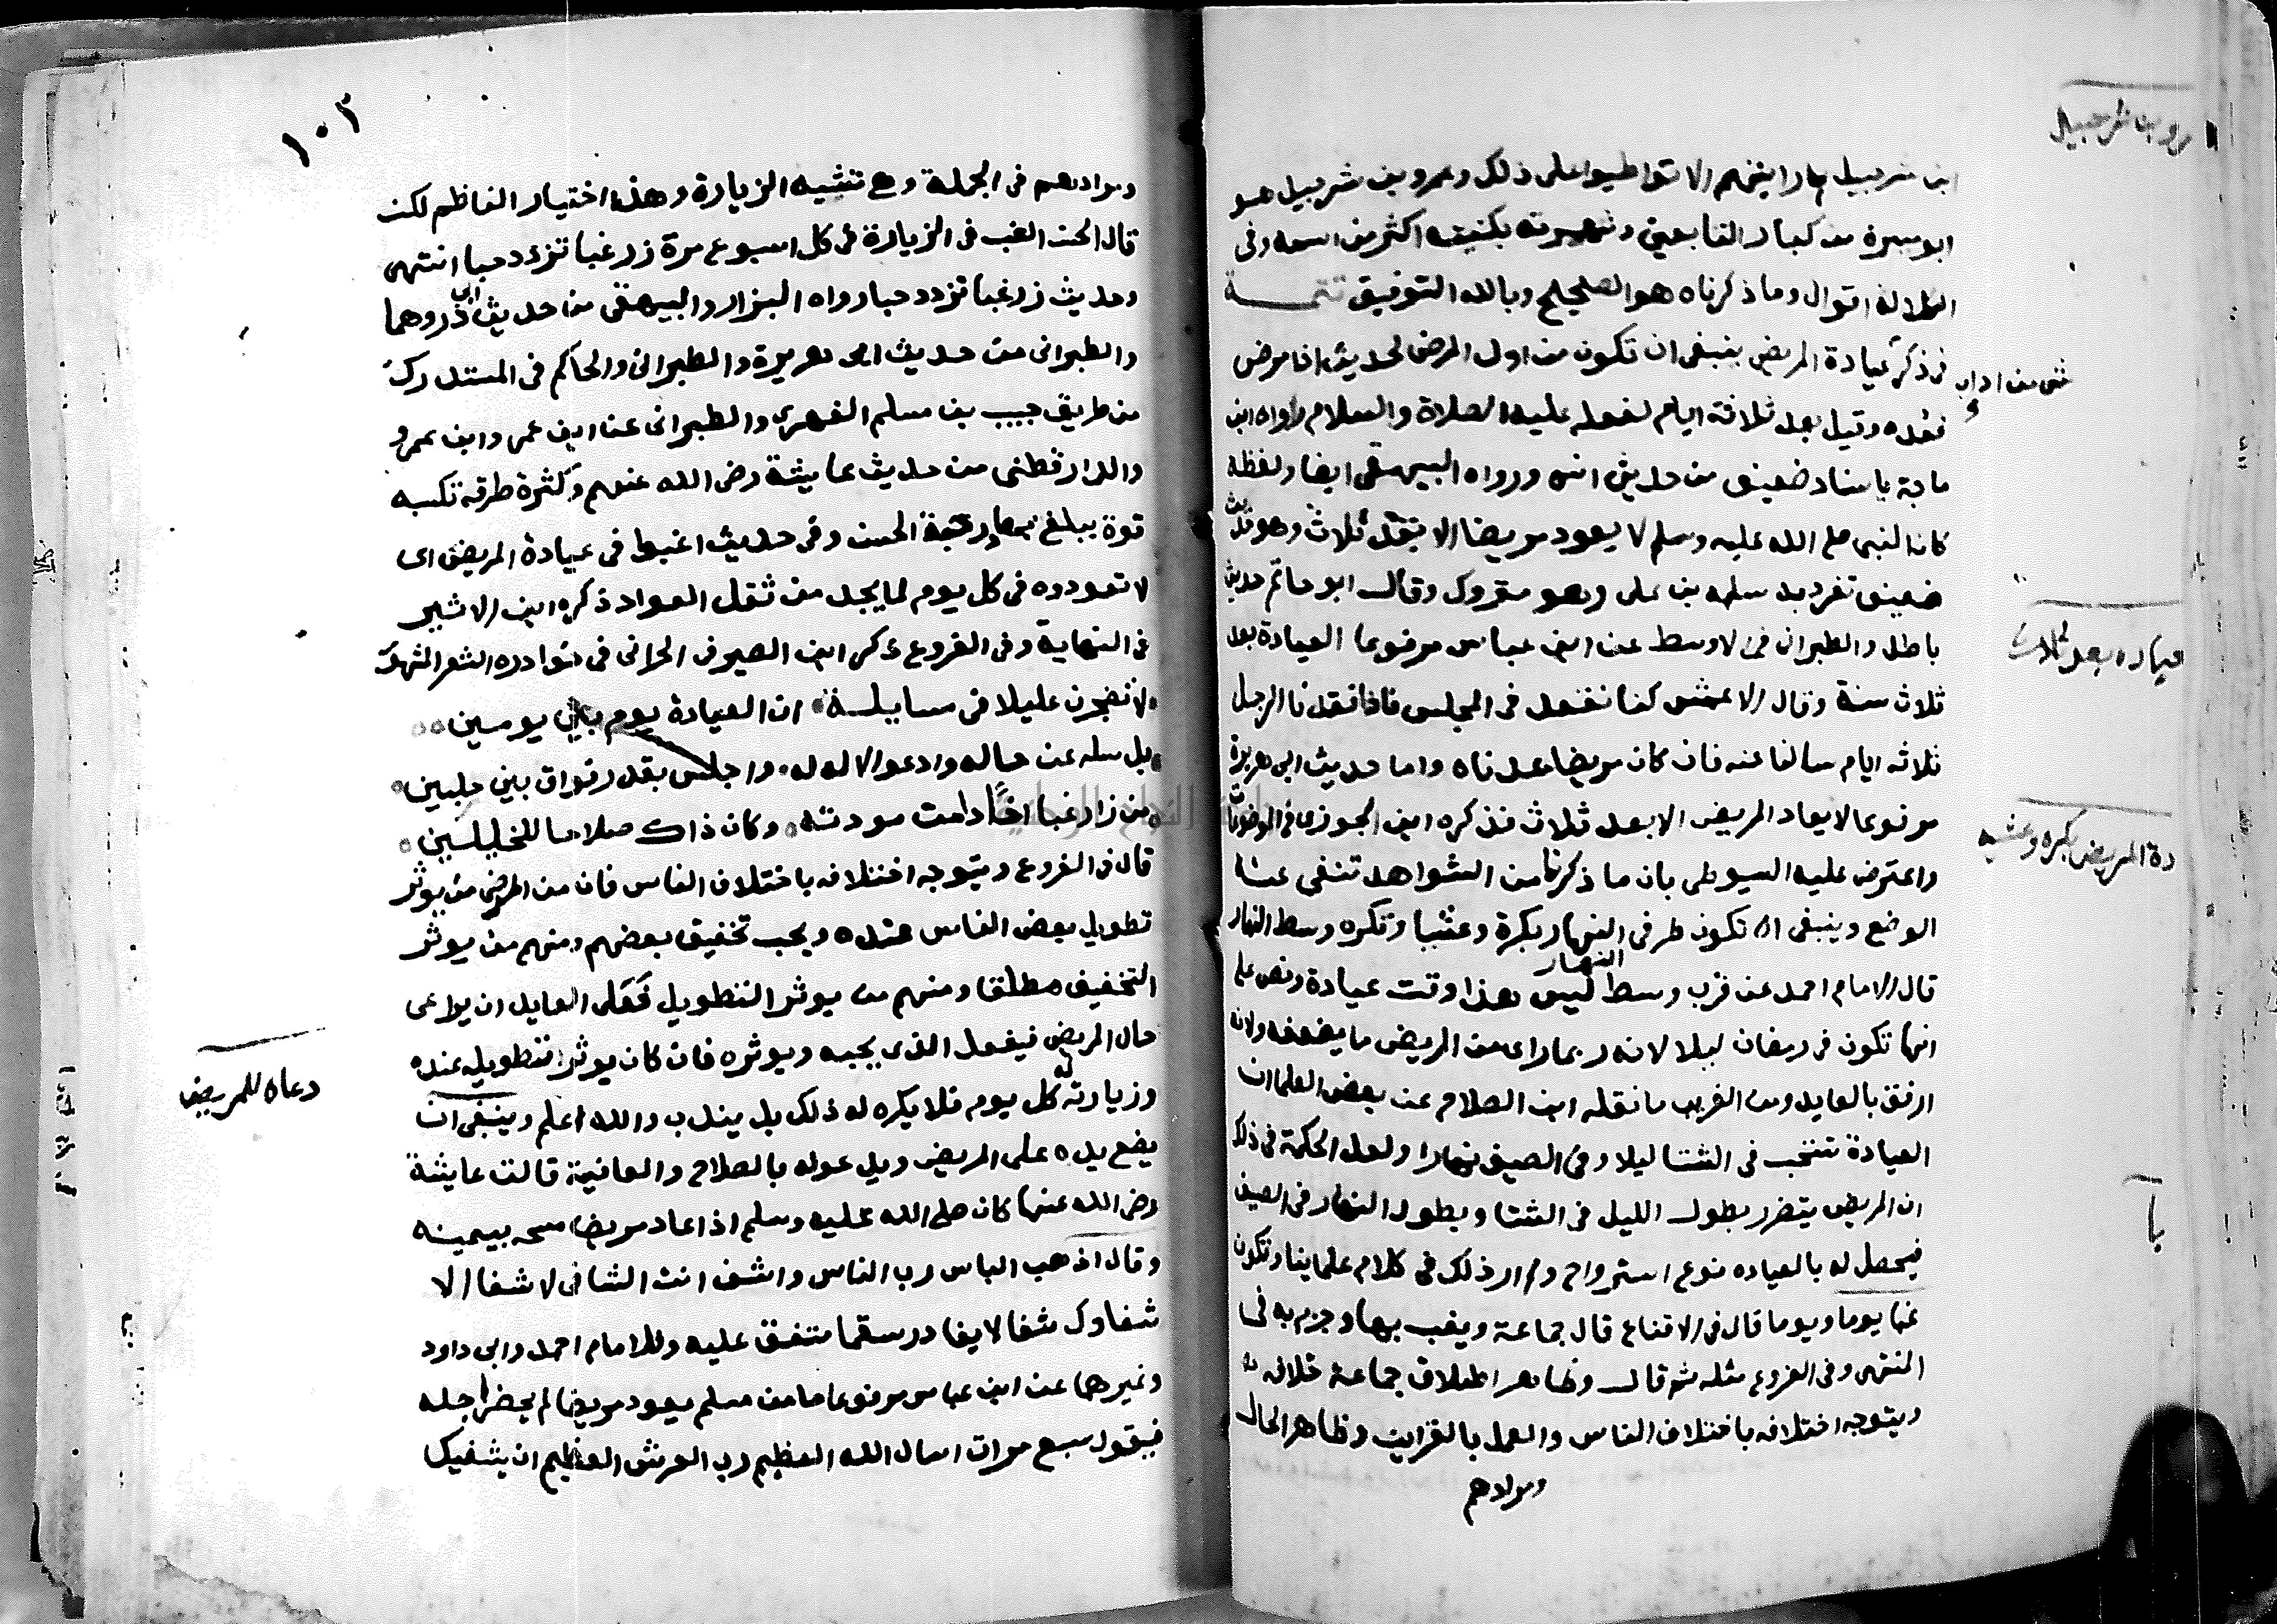 ابن شرحبيل ما رايتهم الا تواطيوا على ذلك وعمرو بن شرحبيل هو
ابو ميسرة من كبار التابعين وشهرته بكنيته اكثر من اسمه وفى
الكلالة اقوال وما ذكرناه هو الصحيح وبالله التوفيق تتمــــة
فى ذكر عيادة المريض ينبغى ان تكون من اول المرض لحديث اذا مرض
فعده وقيل بعد ثلاثة ايام لفعله عليه الصلاة والسلام رواه ابن
ماجة باسناد ضعيف من حديث انس ورواه البيهقى ايضا ولفظه
كان النبى صلى الله عليه وسلم لا يعود مريضا الا بعد ثلاث وهو حديث
ضعيف تفرد به سلمه بن على وهو متروك وقال ابو حاتم حديث
باطل والطبرانى فى الاوسط عن ابن عباس مرفوعا العيادة بعد
ثلاث سنة وقال الاعمش كنا نقعد فى المجلس فاذا فقدنا الرجل
ثلاثه ايام سالنا عنه فان كان مريضا عدناه واما حديث ابى هريرة
مرفوعا لا يعاد المريض الا بعد ثلاث فذكره ابن الجوزى فى الموضوعات
واعترض عليه السيوطى بان ما ذكرنا من الشواهد تنفى عنه
الوضع وينبغى ان تكون طرفى النهار بكرة وعشيا وتكره وسط النهار
قال الامام احمد عن قرب وسط النهار ليس هذا وقت عيادة ونص على
انها تكون فى رمضان ليلا لانه ربما راى من المريض ما يضعفه ولانه
ارفق بالعايد ومن الغريب ما نقله ابن الصلاح عن بعض العلما ان
العيادة تستحب فى الشتا ليلا وفى الصيف نهارا ولعل الحكمة فى ذلك
ان المريض يتضرر بطول الليل فى الشتا وبطول النهار فى الصيف
فيحصل له بالعياده نوع استرواح ولم ار ذلك فى كلام علماينا وتكون
غبا يوما ويوما قال فى الاقناع قال جماعة ويغب بها وجزم به فى
المنتهى وفى الفروع مثله ثم قال وظاهر اطلاق جماعة خلافه
ويتوجه اختلافه باختلاف الناس والعمل بالقراين وظاهر الحال
ومرادهم
رو بن شرحبيل
شى من اداب
عيادة بعد ثلاث
دة المريض بكره وعشيه
با
١٠٢
ومرادهم فى الجملة وهى تشبه الزيارة وهذا اختيار الناظم لكن
قال الحسن الغب فى الزيارة فى كل اسبوع مرة زر غبا تزدد حبا انتهى
وحديث زر غبا تزدد حبا رواه البزار والبيهقى من حديث ابى ذر وهما
والطبرانى من حديث ابى هريرة والطبرانى والحاكم فى المستدرك
من طريق حبيب بن مسلم الفهرى والطبرانى عن ابن عمر وابن عمرو
والدارقطنى من حديث عايشة رضى الله عنهم وكثرة طرقه تكسبه
قوة يبلغ بها رتبة الحسن وفى حديث اغبوا فى عيادة المريض اى
لا تعودوه فى كل يوم لما يجد من ثقل العواد ذكره ابن الاثير
فى النهاية وفى الفروع ذكر ابن الصيرفى الحرانى فى نوادره الشعر المشهور
لا تضجرن عليلا فى مسايلة ان العيادة يوم بين يومين
بل سله عن حاله وادعو الاله له واجلس بقدر فواق بين حلبين
من زار غبا اخًا دامت مودته وكان ذاك صلاحا للخليلين
قال فى الفروع ويتوجه اختلافه باختلاف الناس فان من المرضى من يوثر
تطويل بعض الناس عنده ويحب تخفيف بعضهم ومنهم من يوثر
التخفيف مطلقا ومنهم من يوثر التطويل فعلى العايد ان يراعى
حال المريض فيفعل الذى يحبه ويوثره فان كان يوثر تطويله عنده
وزيارته له كل يوم فلا يكره له ذلك بل يندب والله اعلم وينبغى ان
يضع يده على المريض ويدعو له بالصلاح والعافية قالت عايشة
رضى الله عنها كان صلى الله عليه وسلم اذا عاد مريضا مسحه بيمينه
وقال اذهب الباس رب الناس واشف انت الشافى لا شفا الا
شفاوك شفا لا يغادر سقما متفق عليه وللامام احمد وابى داود
وغيرهما عن ابن عباس مرفوعا ما من مسلم يعود مريضا لم يحضر اجله
فيقول سبع مرات اسال الله العظيم رب العرش العظيم ان يشفيك
دعاه للمريض